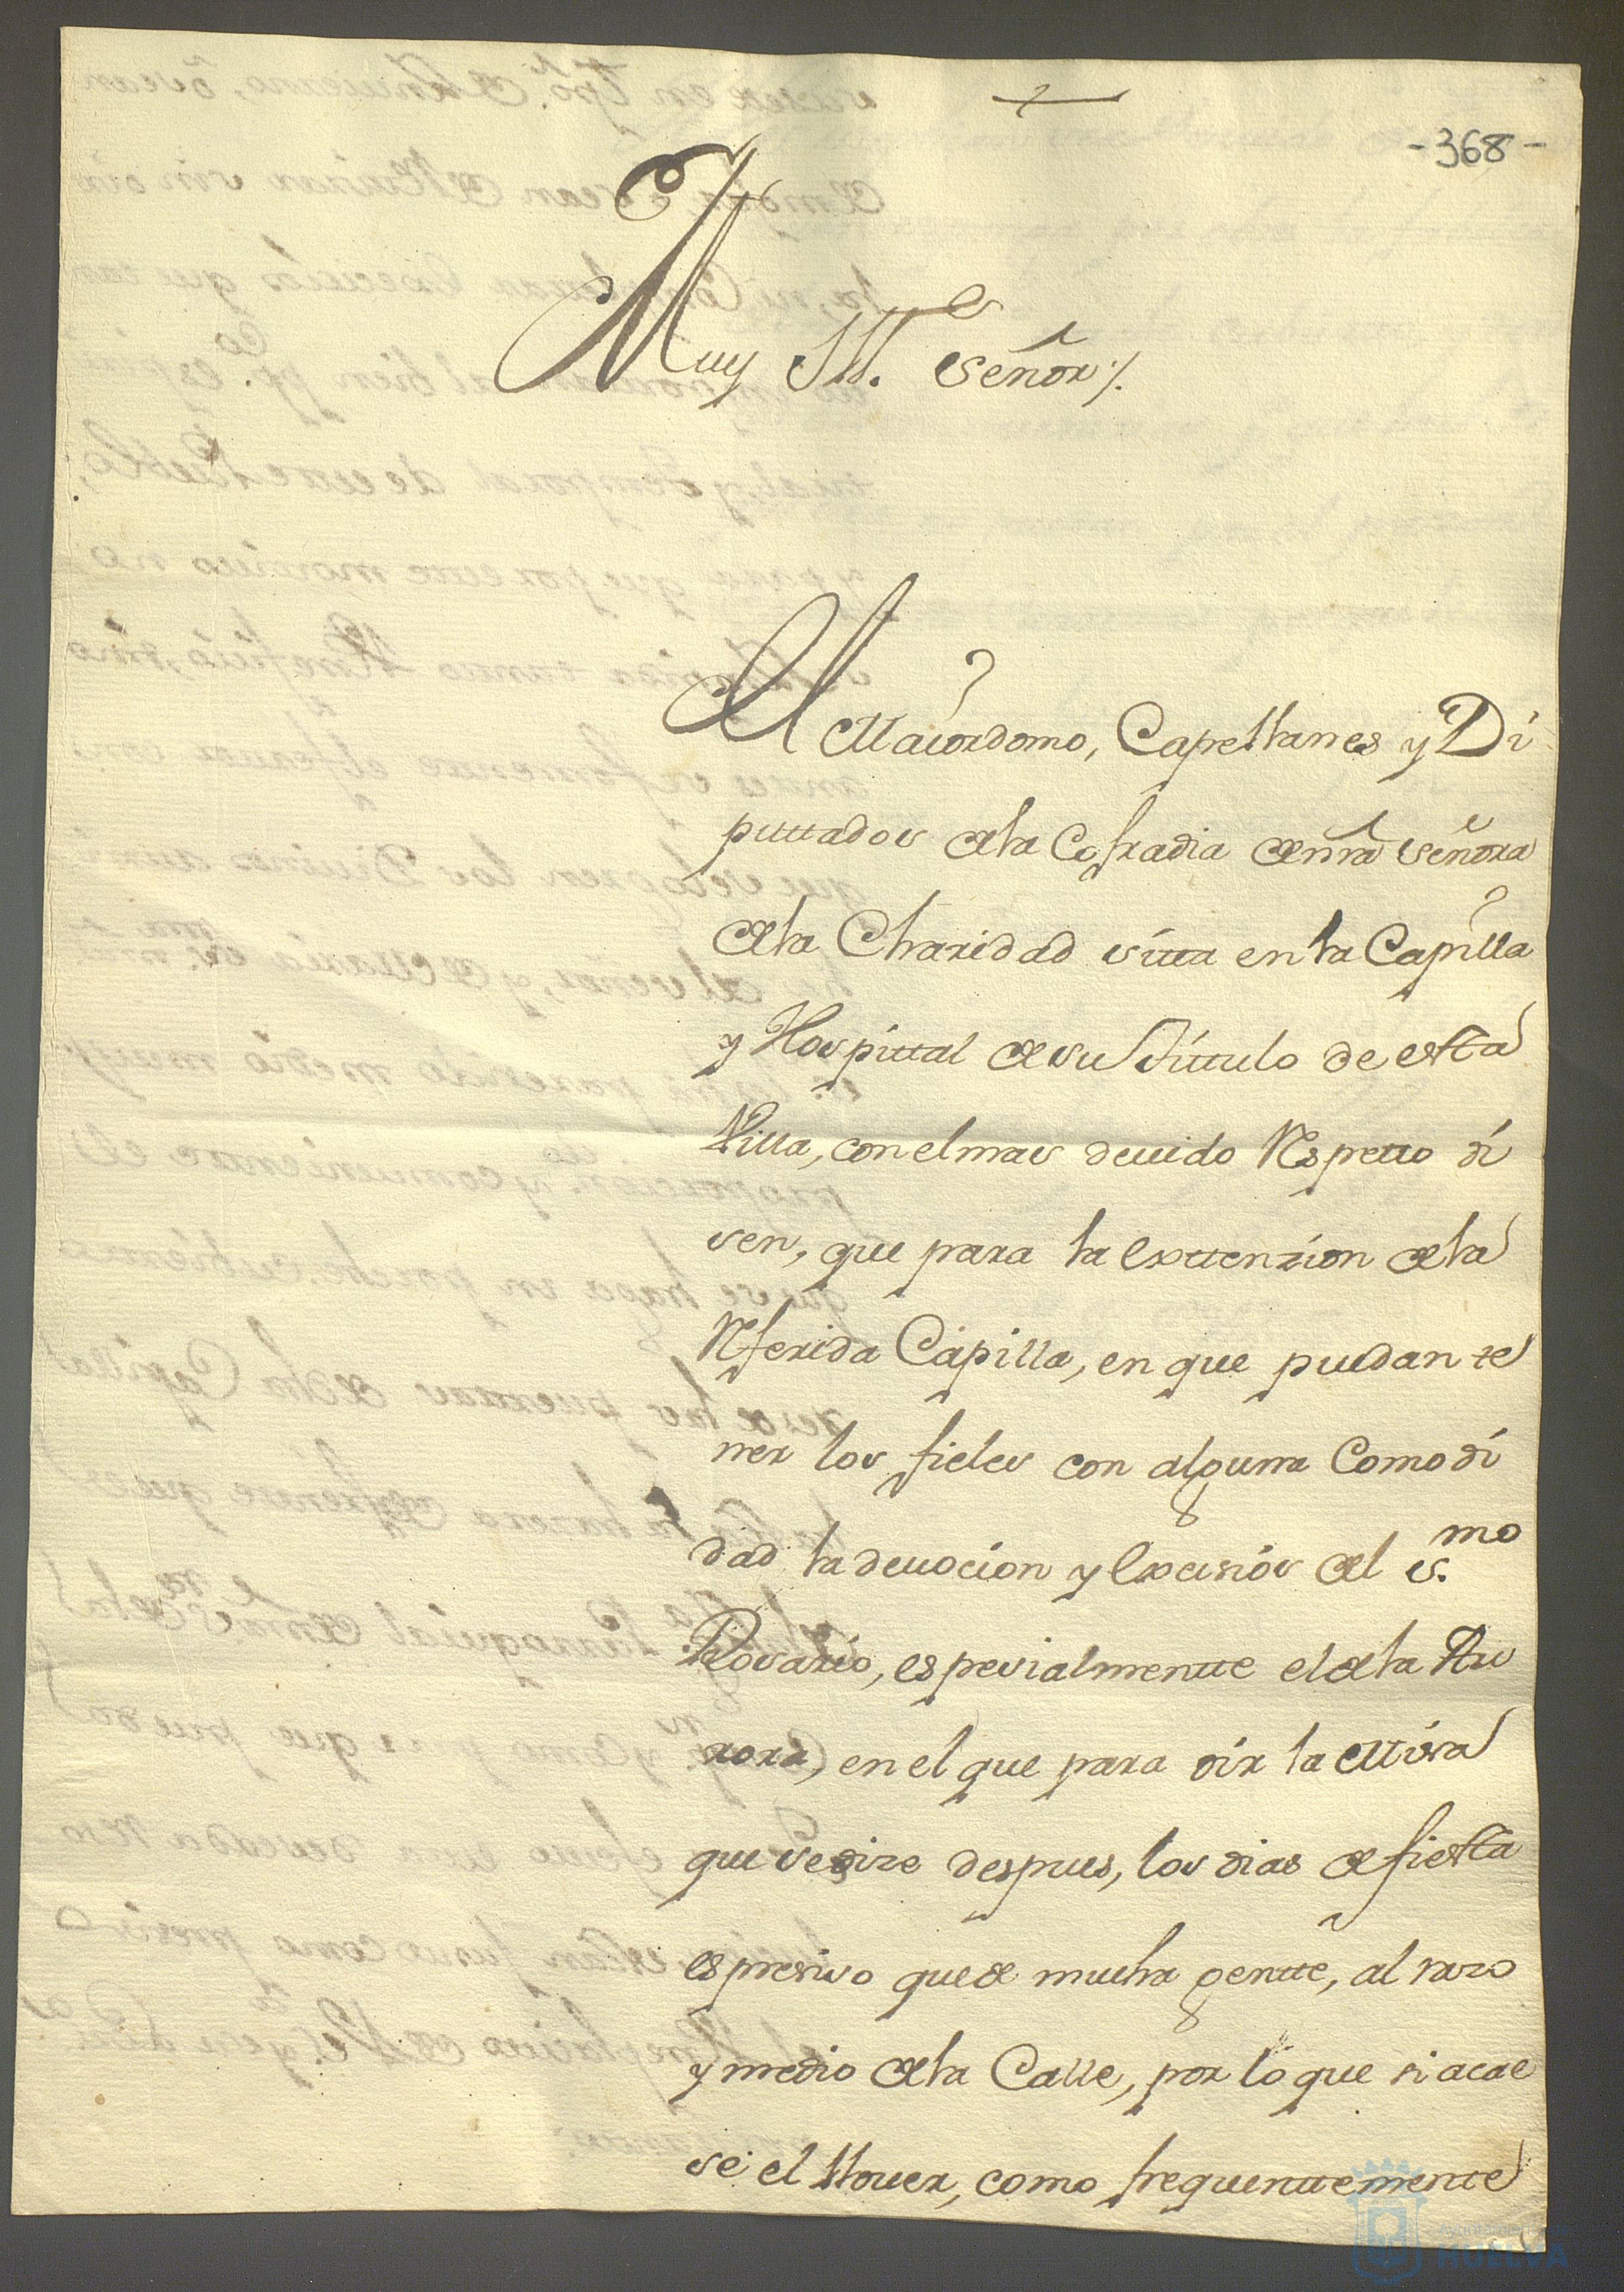 -368-
Muy Ill. Señor /.
El Maiordomo, Capellanes y Di
puttados de la Cofradia de nrã Señora
de la Charidad sitta en la Capilla
y Hospittal de su títtulo de esta
Villa, con el mas devido Respetto di
sen, que para la exttenzion de la
Referida Capilla, en que puedan te
ner los fieles con alguna Comodi
dad la devocion y exersisios del S.mo
Rosario, espesialmentte el de la Au
rora, en el que para oir la Missa
que se dize despues, los dias de fiesta
es presiso quede mucha gentte, al razo
y medio de la Calle, por lo que si acae
se el llover, como frequenttemente
Ayuntamiento de
HUELVA